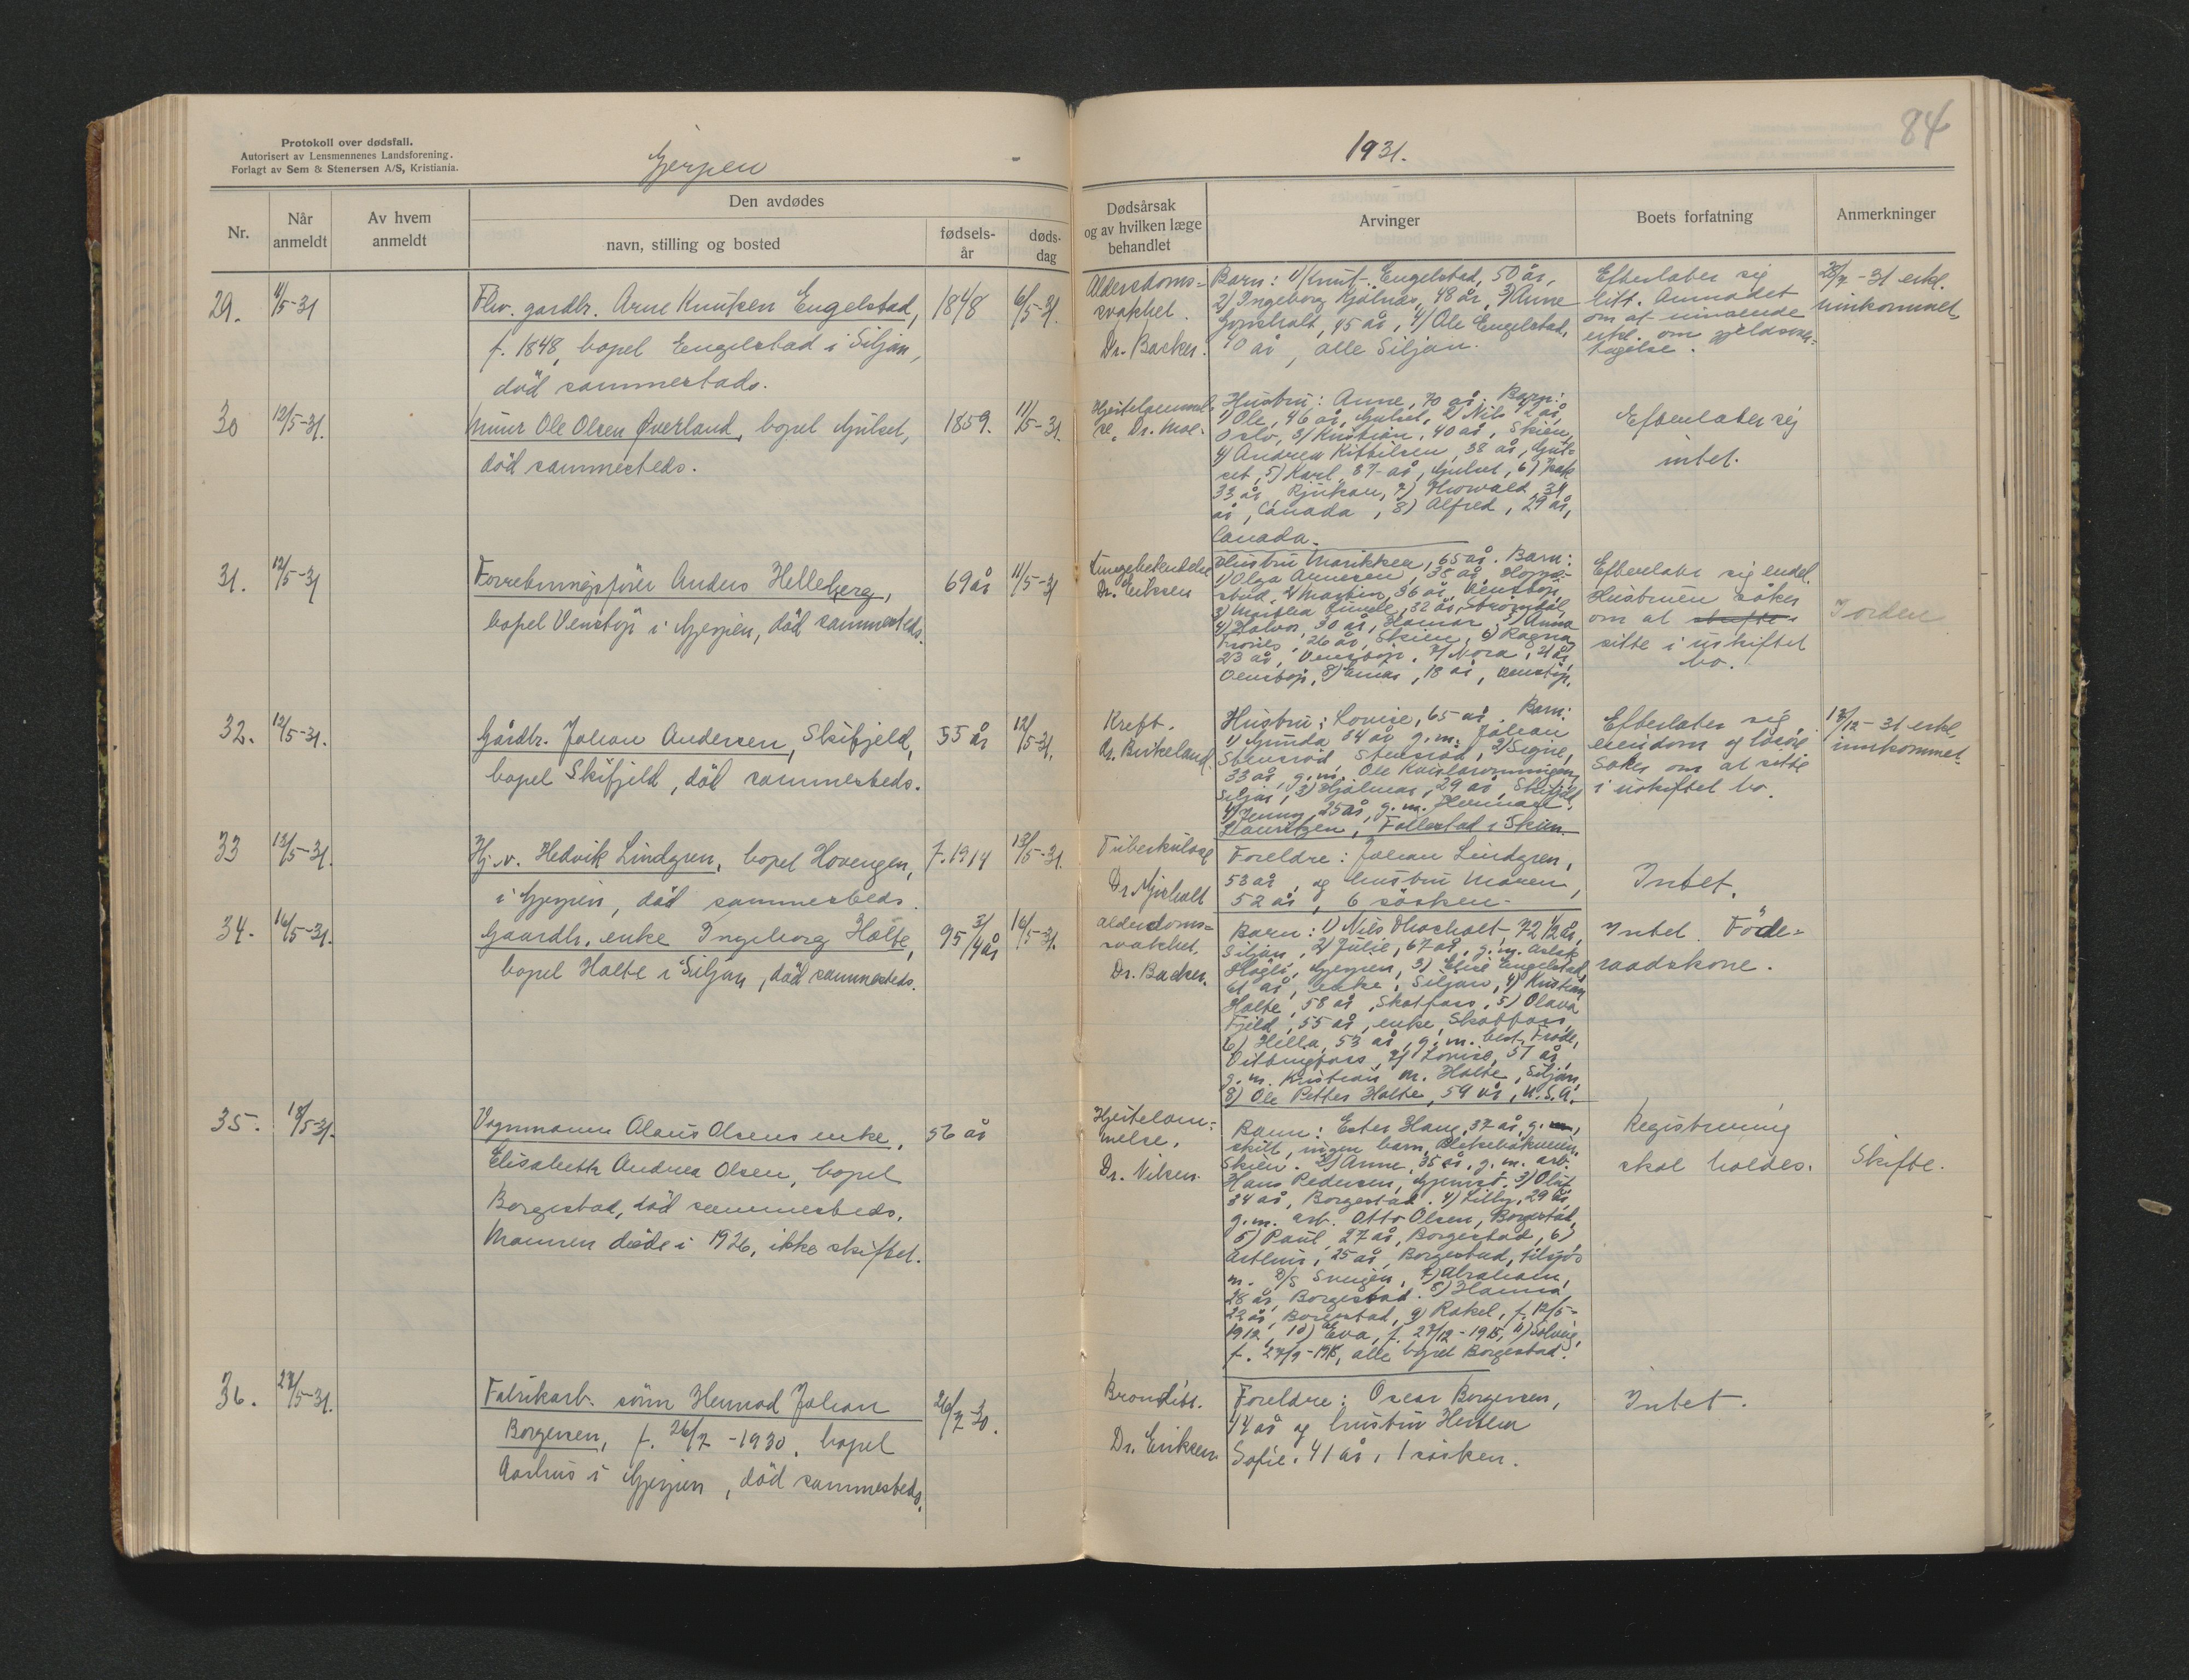 Protokoll over dødsfall.
Autorisert av Lensmennenes Landsforening.
Forlagt av Sem & Stenersen A/S, Kristiania.
Gjerpen
1931.
84
Nr.
Når anmeldt
Av hvem anmeldt
Den avdødes
navn, stilling og bosted
fødsels-år
døds-dag
Dødsårsak og av hvilken læge behandlet
Arvinger
Boets forfatning
Anmerkninger
29.
11/5-31
Flv. gardbr. Arne Knutsen Engelstad,
f. 1848, bopel Engelstad i Siljan,
död sammestads.
1848
6/5-31.
Alderdoms-
svakhet.
Dr. Backer.
Barn: 1) Knut Engelstad, 50 år,
2) Ingeborg Kjølnæs, 48 år, 3) Anne
45 år, 4) Ole Engelstad,
40 år, alle Siljan.
Efterlater sig
litt. Anmodet
om at
erkl. om gjeldsover-
tagelse.
28/7-31 erkl.
innkommet.
30
12/5-31.
Murer Ole Olsen Øverland, bopel Gulset,
död sammesteds.
1859.
11/5-31.
Hjertelammel-
se. Dr. Moe.
Hustru: Anne, 70 år. Barn:
1) Ole, 46 år, Gulset, 2) Nils 42 år,
Oslo, 3) Kristian, 40 år, Skien,
4) Andrea Kittilsen, 38 år, Gul-
set, 5) Karl, 37 år, Gulset, 6) Isak
33 år, Rjukan, 7) Thorvald 31
år, Canada, 8) Alfred, 29 år,
Canada.
Efterlater sig
intet.
31.
12/5-31
Forretningsfører Anders Helleberg,
bopel Venstøp i Gjerpen, död sammesteds.
69 år
11/5-31
Lungebetendelse
Dr. Eriksen
Hustru Marikken, 65 år. Barn:
1) Olga Arnesen, 38 år,
2) Martin, 36 år, Venstøp,
3) Martha 32 år, Strömdal,
4) Halvor, 30 år, Hamar, 5) Anna
26 år, Skien, 6) Ragna,
23 år, Venstøp, 7) Nora, 21 år,
Venstøp, 8) Einar, 18 år, Venstøp.
Efterlater sig eiend.
Hustruen söker
om at skifte
sitte i uskiftet
bo.
Jorden
32.
12/5-31.
Gårdbr. Johan Andersen, Skifjeld,
bopel Skifjeld, död sammesteds.
55 år
12/5-31.
Kreft.
Dr. Birkeland.
Hustru: Lovise, 65 år. Barn:
1) Gunda 34 år g.m. Johan
Stensrød, Stensrød, 2) Signe,
33 år, g.m. Ole
Siljan, 3) Hjalmar, 29 år, Skifjeld,
4) Jenny, 25 år, g.m. Herman
Lauritzen, Follestad i Skien.
Efterlater sig
eiendom og løsøre
Søker om at sitte
i uskiftet bo.
12/12-31 erkl.
innkommet.
33
13/5-31.
Hj.v. Hedvik Lindgren, bopel Hovengen,
i Gjerpen, död sammesteds.
f. 1914
13/5-31.
Tuberkulose
Dr. Mjørholt
Foreldre: Johan Lindgren,
53 år, og hustru Maren,
52 år, 6 søsken.
Intet.
34.
16/5-31.
Gaardbr. enke Ingeborg Holte,
bopel Holte i Siljan, död sammesteds.
95 3/4 år
16/5-31.
alderdoms-
svakhet,
Dr. Backer.
Barn: 1) Nils Thorholt 72 1/2 år,
Siljan, 2) Julie, 67 år, g.m. Aslak
Gjerpen, 3) Elise Engelstad,
61 år, enke, Siljan, 4) Kristian
Holte, 58 år, Skotfoss, 5) Olava
Fjeld, 55 år, enke, Skotfoss,
6) Hella, 53 år, g.m. best. Frode,
Vittingfoss, 7) Lovise, 51 år,
g.m. Kristian M. Holte, Siljan,
8) Ole Petter Holte, 59 år, U.S.A.
Intet. Föde-
raadskone.
35.
18/5-31.
Vognmann Olaus Olsens enke,
Elisabeth Andrea Olsen, bopel
Borgestad, död sammesteds,
Mannen døde i 1926, ikke skiftet.
56 år
Hjertelam-
melse.
Dr. Nilsen.
Barn: Ester Haug, 37 år, g.m.,
skilt, ingen barn,
Skien. 2) Anne, 35 år, g.m. arb.
Hans Pedersen, 3) Olaf,
34 år, Borgestad. 4) Lilly, 29 år,
g.m. arb. Otto Olsen, Borgestad,
5) Paul, 27 år, Borgestad, 6)
Arthur, 25 år, Borgestad, tilsjøs
m. D/S 7) Abraham,
28 år, Borgestad. 8) Hanna,
22 år, Borgestad, 9) Rakel, f. 12/5-
1912, 10) Eva, f. 27/12-1915, 11) Solveig,
f. 27/9-1918, alle bopel Borgestad.
Registrering
skal holdes.
Skifte.
36.
27/5-31.
Fabrikarb. sönn Hermod Johan
Borgersen, f. 26/7-1930, bopel
Aarhus i Gjerpen, död sammesteds.
26/7-30.
Bronchitt.
Dr. Eriksen
Foreldre: Oscar Borgersen,
44 år og hustru Herthea
Sofie. 41 år, 1 søsken.
Intet.